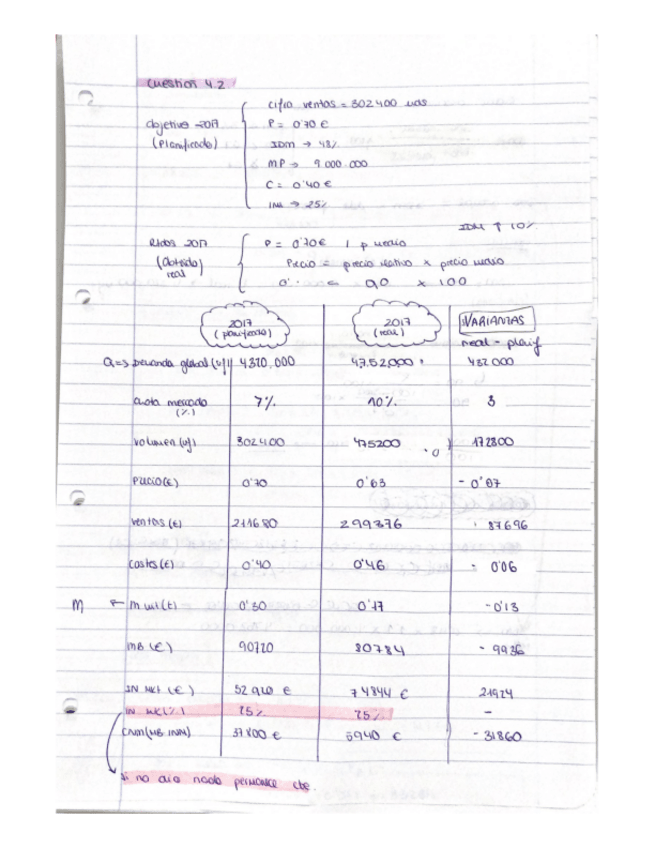 Cuestion 4.2
Cifra ventas = 302400 uds
Objetivo 2017 P = 0'70 €
(Planificado) IDM → 48%
MP → 9.000.000
C = 0'40 €
INM → 25%
IDM ↑ 10%
Rtdos 2017 P = 0'70€ / p medio
(Obtenido) Precio = precio relativo x precio medio
real 90 x 100
2017 (planificado) 2017 (real) VARIANZAS
real - planif
Q => Demanda global (uf) 4320.000 4752000 432000
Cuota mercado (%) 7% 10% 3
Volumen (uf) 302400 475200 172800
Precio (€) 0'70 0'63 - 0'07
Ventas (€) 211680 299376 87696
Costes (€) 0'40 0'46 0'06
M ← M. uit (€) 0'30 0'17 -0'13
MB (€) 90720 80784 - 9936
IN MKt (€) 52920 € 74844 € 21924
IN MK(%) 25% 25% -
CNM (MB INM) 37800 € 5940 € - 31860
Si no dice nada permanece cte.